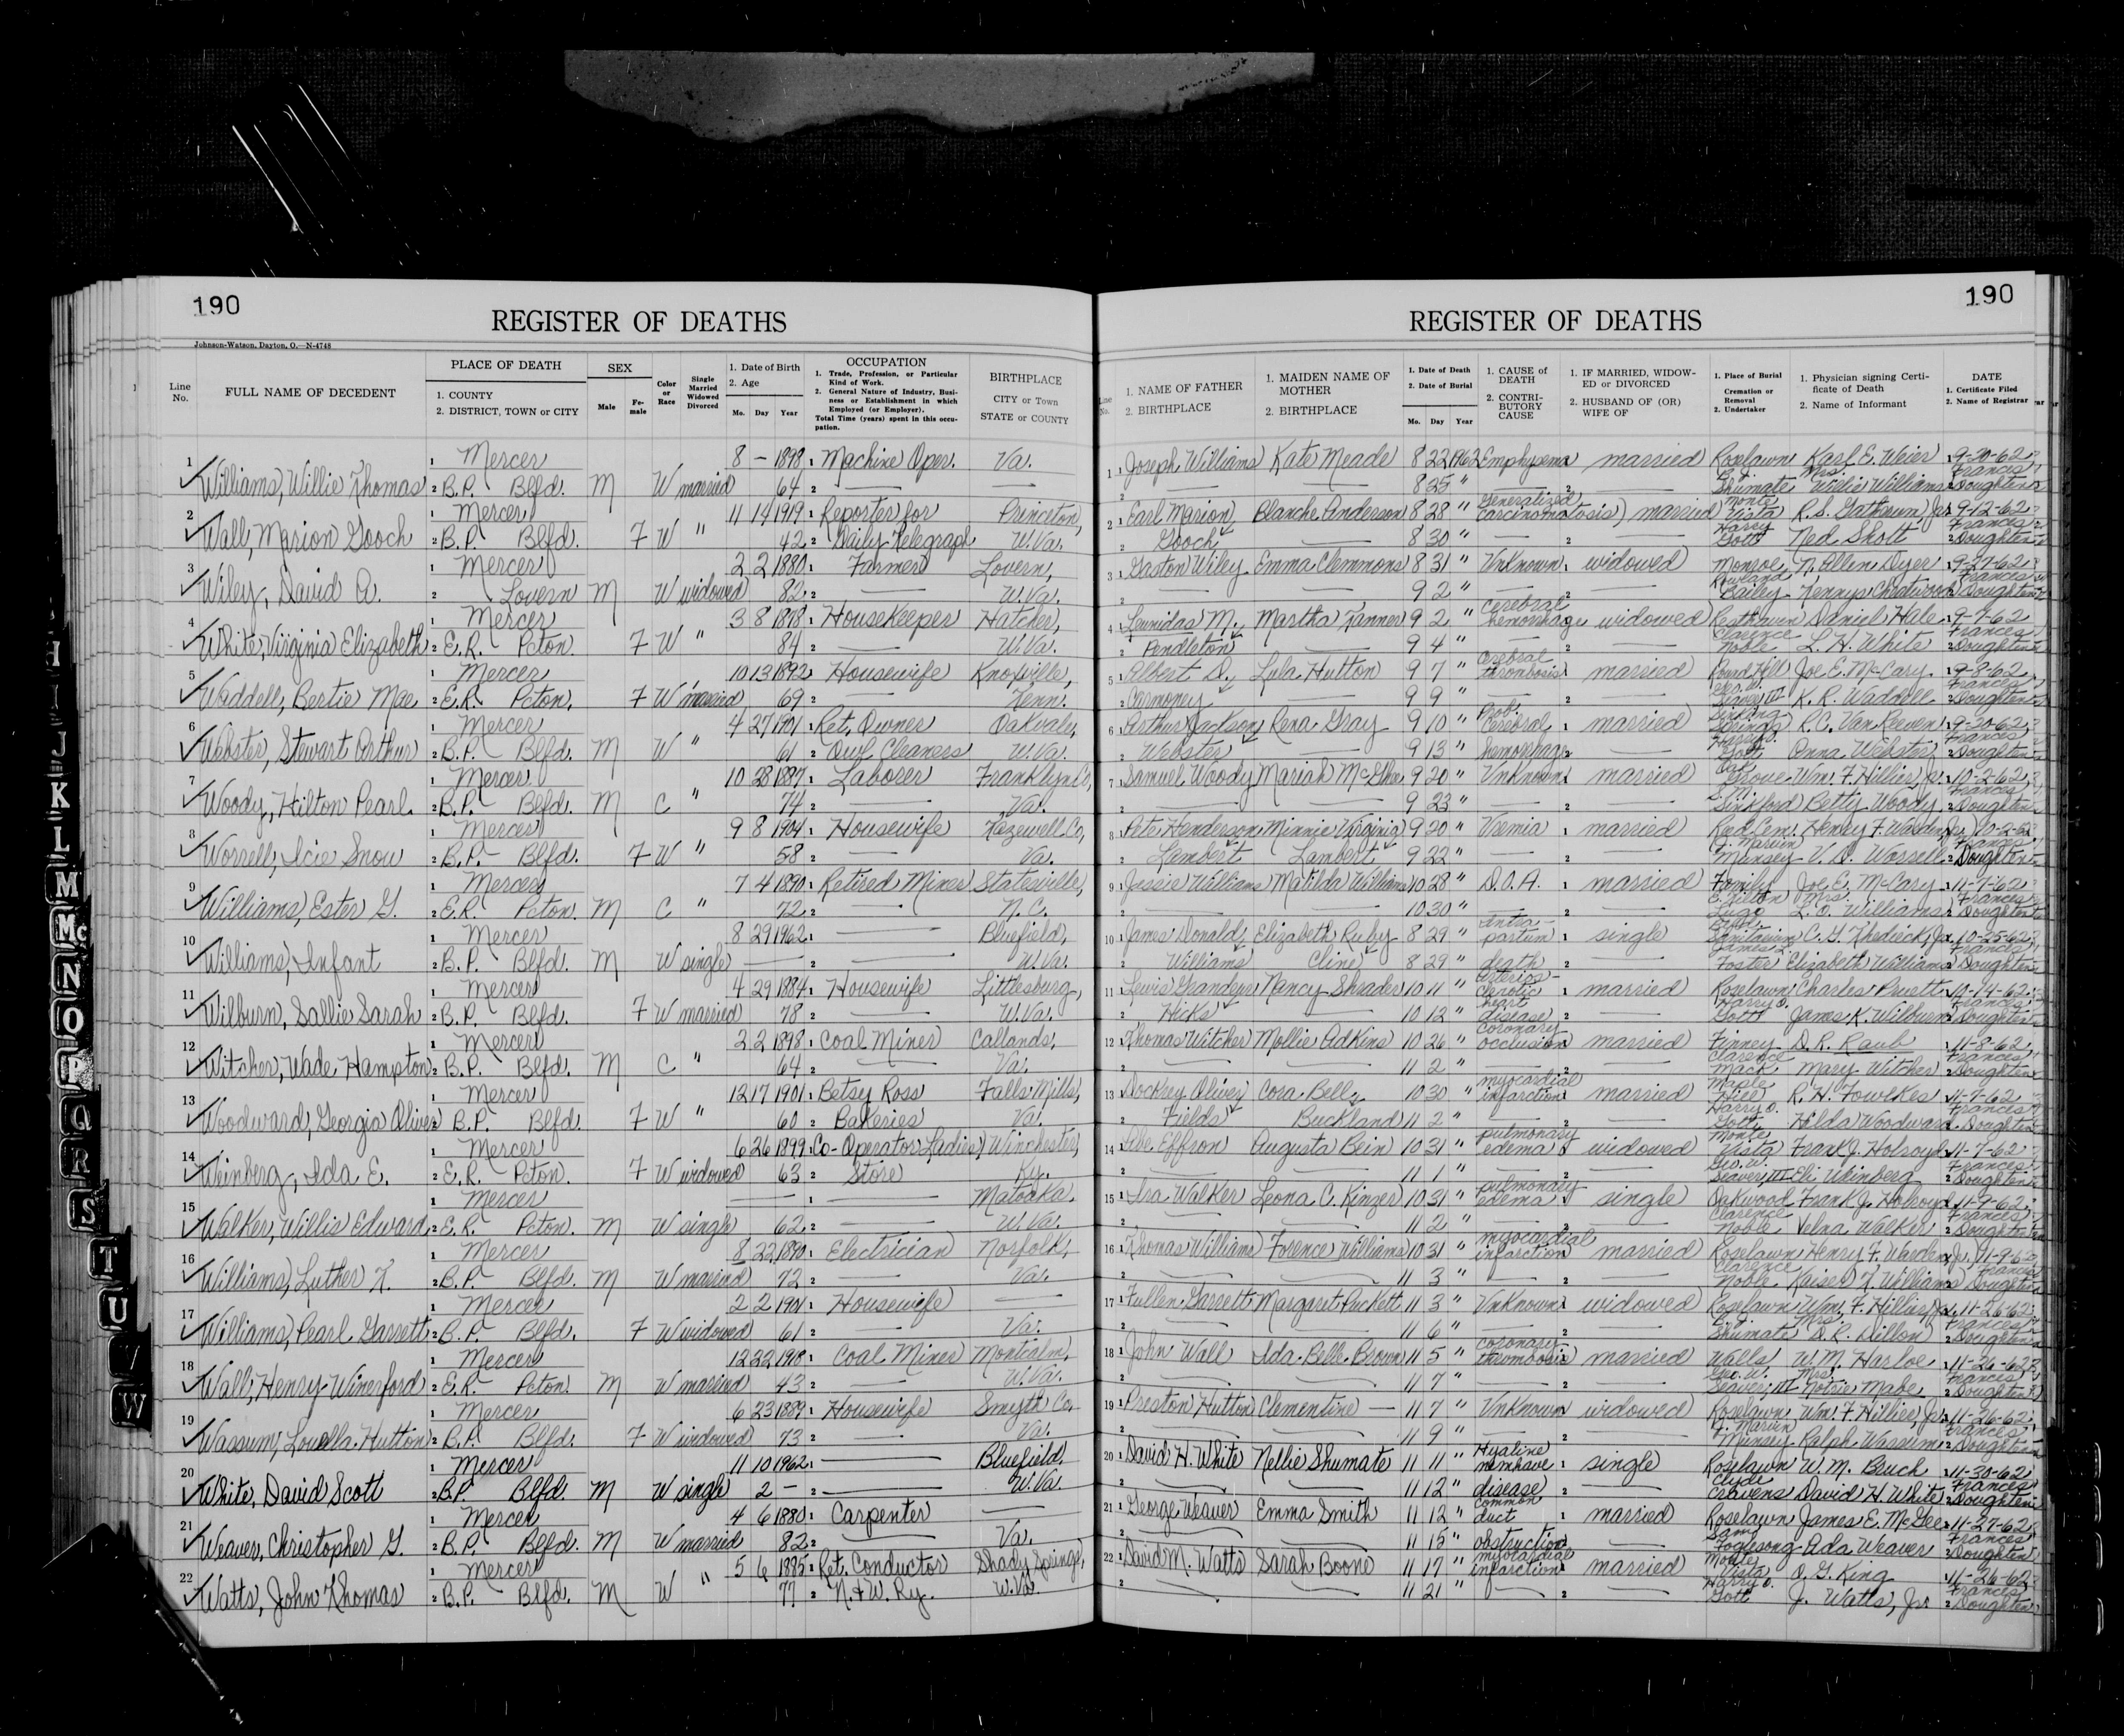 190
REGISTER OF DEATHS
Johnson-Watson, Dayton, O.—N-4748
Line No.
FULL NAME OF DECEDENT
PLACE OF DEATH
1. COUNTY
2. DISTRICT, TOWN or CITY
SEX
Male
Fe-male
Color or Race
Single Married Widowed Divorced
1. Date of Birth
2. Age
Mo. Day Year
OCCUPATION
1. Trade, Profession, or Particular Kind of Work.
2. General Nature of Industry, Busi-ness or Establishment in which Employed (or Employer).
Total Time (years) spent in this occu-pation.
BIRTHPLACE
CITY or Town
STATE or COUNTY
1 Mercer 8 – 1898 1 Machine Oper. Va.
Williams, Willie Thomas 2 B.P. Blfd. M W married 64 2
2 1 Mercer 11 14 1919 1 Reporter for Princeton,
Wall, Marion Gooch 2 B.P. Blfd. F W " 42 2 Daily Telegraph W.Va.
3 1 Mercer 2 2 1880 1 Farmer Lovern,
Wiley, David A. 2 Lovern M W widowed 82 2 W.Va.
4 1 Mercer 3 8 1878 1 Housekeeper Hatcher,
White, Virginia Elizabeth 2 E.R. Pcton. F W " 84 2 W.Va.
5 1 Mercer 10 13 1892 1 Housewife Knoxville,
Waddell, Bertie Mae 2 E.R. Pcton. F W married 69 2 Tenn.
6 1 Mercer 4 27 1901 1 Ret. Owner Oakvale,
Webster, Stewart Arthur 2 B.P. Blfd. M W " 61 2 Owl Cleaners W.Va.
7 1 Mercer 10 28 1887 1 Laborer Franklyn Co,
Woody, Hilton Pearl 2 B.P. Blfd. M C " 74 2 Va.
8 1 Mercer 9 8 1904 1 Housewife Tazewell Co,
Worrell, Icie Snow 2 B.P. Blfd. F W " 58 2 Va.
9 1 Mercer 7 4 1890 1 Retired Miner Statesville,
Williams, Ester G. 2 E.R. Pcton. M C " 72 2 N.C.
10 1 Mercer 8 29 1962 1 Bluefield,
Williams, Infant 2 B.P. Blfd. M W single 2 W.Va.
11 1 Mercer 4 29 1884 1 Housewife Littlesburg,
Wilburn, Sallie Sarah 2 B.P. Blfd. F W married 78 2 W.Va.
12 1 Mercer 2 2 1898 1 Coal Miner Callands,
Witcher, Wade Hampton 2 B.P. Blfd. M C " 64 2 Va.
13 1 Mercer 12 17 1901 1 Betsy Ross Falls Mills,
Woodward, Georgia Oliver 2 B.P. Blfd. F W " 60 2 Bakeries Va.
14 1 Mercer 6 26 1899 1 Co-Operator Ladies Winchester,
Weinberg, Ida E. 2 E.R. Pcton. F W widowed 63 2 Store Ky.
15 1 Mercer 1 Matoaka,
Walker, Willis Edward 2 E.R. Pcton. M W single 62 2 W.Va.
16 1 Mercer 8 22 1890 1 Electrician Norfolk,
Williams, Luther K. 2 B.P. Blfd. M W married 72 2 Va.
17 1 Mercer 2 2 1901 1 Housewife
Williams, Pearl Garrett 2 B.P. Blfd. F W widowed 61 2 Va.
18 1 Mercer 12 22 1918 1 Coal Miner Montcalm,
Wall, Henry Winerford 2 E.R. Pcton. M W married 43 2 W.Va.
19 1 Mercer 6 23 1889 1 Housewife Smyth Co.
Wassum, Louella Hutton 2 B.P. Blfd. F W widowed 73 2 Va.
20 1 Mercer 11 10 1962 1 Bluefield,
White, David Scott 2 B.P. Blfd. M W single 2 – 2 W.Va.
21 1 Mercer 4 6 1880 1 Carpenter
Weaver, Christopher G. 2 B.P. Blfd. M W married 82 2 Va.
22 1 Mercer 5 6 1885 1 Ret. Conductor Shady Springs,
Watts, John Thomas 2 B.P. Blfd. M W " 77 2 N. & W. Ry. W.Va.
I
J
K
L
M
Mc
N
O
P
Q
R
S
T
U
V
W
190
REGISTER OF DEATHS
Line No.
1. NAME OF FATHER
2. BIRTHPLACE
1. MAIDEN NAME OF MOTHER
2. BIRTHPLACE
1. Date of Death
2. Date of Burial
Mo. Day Year
1. CAUSE OF DEATH
2. CONTRI-BUTORY CAUSE
1. IF MARRIED, WIDOW-ED or DIVORCED
2. HUSBAND OF (OR) WIFE OF
1. Place of Burial Cremation or Removal
2. Undertaker
1. Physician signing Certi-ficate of Death
2. Name of Informant
DATE
1. Certificate Filed
2. Name of Registrar
1 1 Joseph Williams Kate Meade 8 22 1962 Emphysema married Roselawn Karl E. Weier 9-20-62
2 8 25 " Shumate Mrs. Willie Williams Frances Doughten
2 1 Earl Marion Blanche Anderson 8 28 " generalized carcinomatosis married Monte Vista R.S. Gatherum Jr. 9-12-62
2 Gooch 8 30 " Harry Gott Ned Shott Frances Doughten
3 1 Gaston Wiley Emma Clemmons 8 31 " Unknown widowed Monroe N. Allen Dyer 9-27-62
2 9 2 " Rowland Bailey Frances Doughten
4 1 Leunidas M. Martha Tanner 9 2 " cerebral hemorrhage widowed Resthaven Daniel Hale 9-7-62
2 Pendleton 9 4 " Clarence Noble L. H. White Frances Doughten
5 1 Albert D. Lula Hutton 9 7 " cerebral thrombosis married Pound Hill Joe E. McCary 9-8-62
2 Carmoney 9 9 " Geo. W. Seaver III K. R. Waddell Frances Doughten
6 1 Arthur Jackson Rena Gray 9 10 " Prob. cerebral married R.C. Van Reenen 9-20-62
2 Webster 9 13 " hemorrhage Harry O. Gott Anna Webster Frances Doughten
7 1 Samuel Woody Mariah McGhee 9 20 " Unknown married Oak Grove Wm. F. Hillier, Jr. 10-2-62
2 9 23 " Sinkford Betty Woody Frances Doughten
8 1 Pete Henderson Minnie Virginia 9 20 " Uremia married Reed Cem. Henry F. Warden Jr. 10-2-62
2 Lambert Lambert 9 22 " F. Marvin Munsey V. D. Worrell Frances Doughten
9 1 Jessie Williams Matilda Williams 10 28 " D.O.A. married Family Joe E. McCary 11-7-62
2 10 30 " E. Hilton Lugo Mrs. L. O. Williams Frances Doughten
10 1 James Donald Elizabeth Ruby 8 29 " intra-partum single Blfd. Sanitarium 10-25-62
2 Williams Cline 8 29 " death James Foster Elizabeth Williams Frances Doughten
11 1 Lewis Grander Nancy Shrader 10 11 " arterios-clerotic married Roselawn Charles Pruett 10-14-62
2 Hicks 10 12 " heart disease Harry O. Gott James K. Wilburn Frances Doughten
12 1 Thomas Witcher Mollie Adkins 10 26 " coronary occlusion married Finney D. R. Raub 11-8-62
2 11 2 " Clarence Mack Mary Witcher Frances Doughten
13 1 Dockrey Oliver Cora Bell 10 30 " myocardial infarction married Maple Hill R. H. Fowlkes 11-7-62
2 Fields Buckland 11 2 " Harry O. Gott Hilda Woodward Frances Doughten
14 1 Abe Effron Augusta Bein 10 31 " pulmonary edema widowed Monte Vista Frank J. Holroyd 11-7-62
2 11 1 " Geo. W. Seaver III Eli Weinberg Frances Doughten
15 1 Ira Walker Leona C. Kinzer 10 31 " pulmonary edema single Oakwood Frank J. Holroyd 11-9-62
2 11 2 " Clarence Noble Velna Walker Frances Doughten
16 1 Thomas Williams Forence Williams 10 31 " myocardial infarction married Roselawn Henry F. Warden Jr. 11-9-62
2 11 3 " Clarence Noble Kaiser K. Williams Frances Doughten
17 1 Fullen Garrett Margaret Puckett 11 3 " Unknown widowed Roselawn Wm. F. Hillier Jr. 11-26-62
2 11 6 " Shumate Mrs. D. R. Dillon Frances Doughten
18 1 John Wall Ida Belle Brown 11 5 " coronary thrombosis married Walls W. M. Harloe 11-26-62
2 11 7 " Geo. W. Seaver III Mrs. Notsie Mabe Frances Doughten
19 1 Preston Hutton Clementine — 11 7 " Unknown widowed Roselawn Wm. F. Hillier, Jr. 11-26-62
2 11 9 " F. Marvin Munsey Ralph Wassum Frances Doughten
20 1 David H. White Nellie Shumate 11 11 " Hyaline membrane single Roselawn W. M. Bruch 11-30-62
2 11 12 " disease Clyde Cravens David H. White Frances Doughten
21 1 George Weaver Emma Smith 11 12 " common duct married Roselawn James E. McGee 11-27-62
2 11 15 " obstruction Sam Foglesong Ada Weaver Frances Doughten
22 1 David M. Watts Sarah Boone 11 17 " myocardial infarction married Monte Vista O. G. King 11-26-62
2 11 21 " Harry O. Gott J. Watts, Jr. Frances Doughten